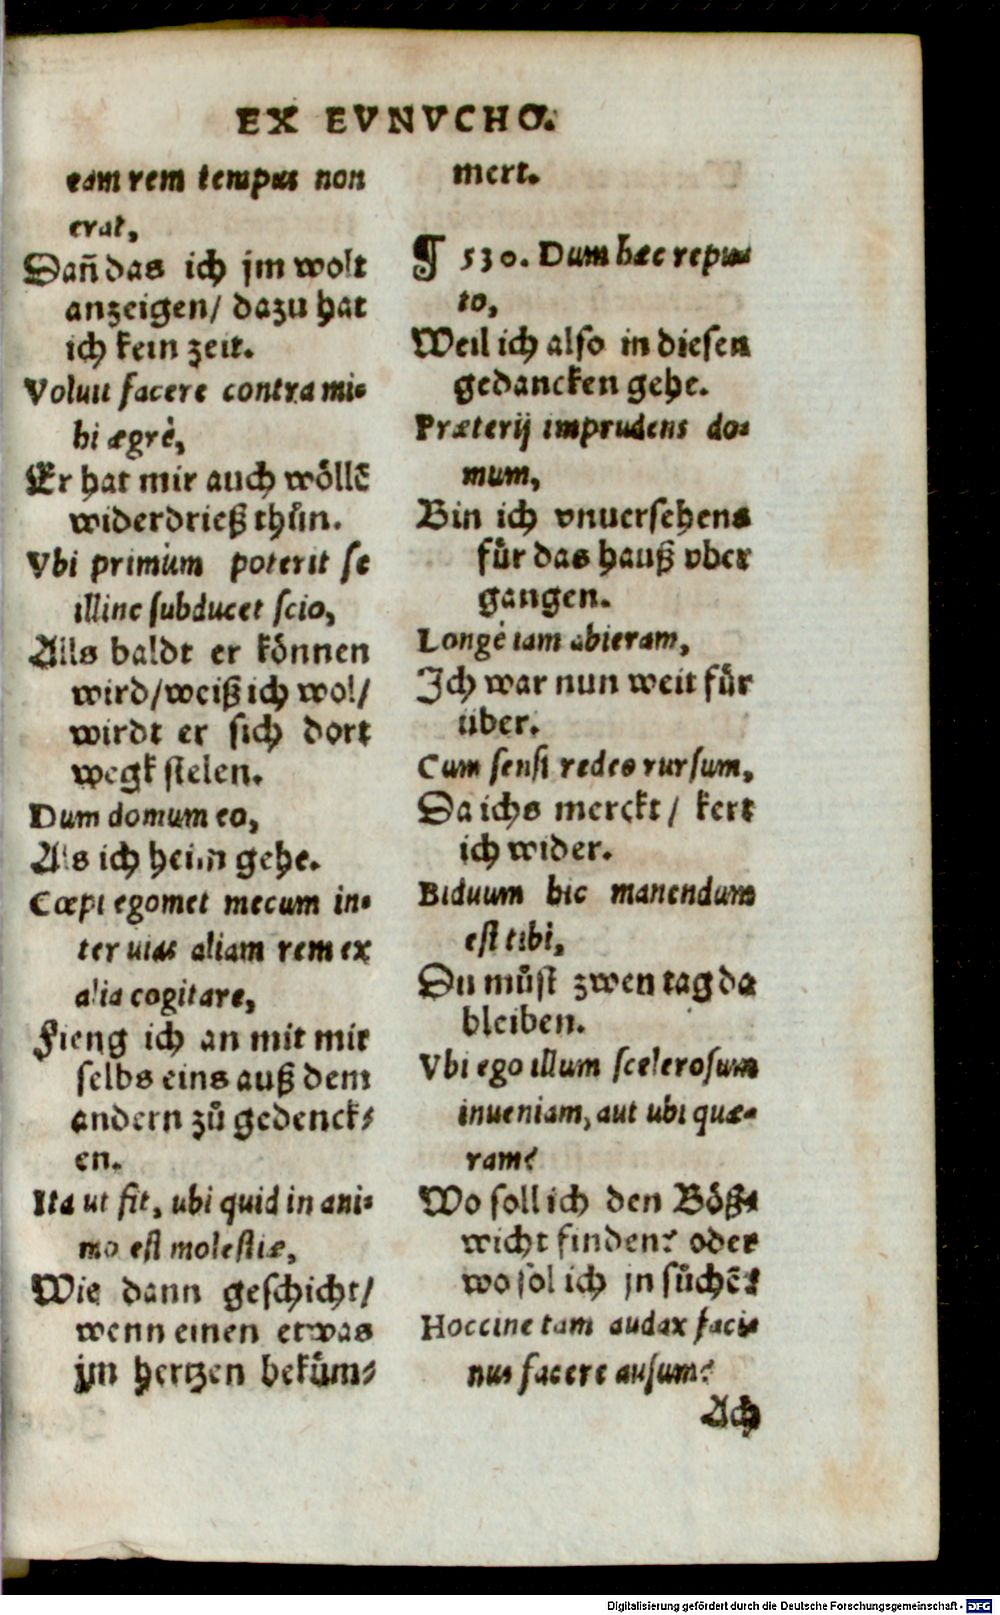 EX EVNVCHO.
eam rem tempus non
erat,
Dañ das ich jm wolt
anzeigen/ dazu hat
ich kein zeit.
Voluit facere contra mi-
hi ægrè,
Er hat mir auch wöllẽ
widerdrieß thůn.
Vbi primùm poterit se
illinc subducet scio,
Alls baldt er können
wird/weiß ich wol/
wirdt er sich dort
wegk stelen.
Dum domum eo,
Als ich heim gehe.
Cœpi egomet mecum in-
ter uias aliam rem ex
alia cogitare,
Fieng ich an mit mir
selbs eins auß dem
andern zů gedenck-
en.
Ita ut fit, ubi quid in ani-
mo est molestiæ,
Wie dann geschicht/
wenn einen etwas
jm hertzen beküm-
mert.
¶ 530. Dum hæc repu-
to,
Weil ich also in diesen
gedancken gehe.
Præterij imprudens do-
mum,
Bin ich vnuersehens
für das hauß vber
gangen.
Longè iam abieram,
Ich war nun weit für
über.
Cum sensi redeo rursum,
Da ichs merckt/ kert
ich wider.
Biduum hic manendum
est tibi,
Du můst zwen tag da
bleiben.
Vbi ego illum scelerosum
inueniam, aut ubi quæ-
ram?
Wo soll ich den Böß-
wicht finden? oder
wo sol ich jn sůchẽ?
Hoccine tam audax faci-
nus facere ausum?
Ach
Digitalisierung gefördert durch die Deutsche Forschungsgemeinschaft - DFG